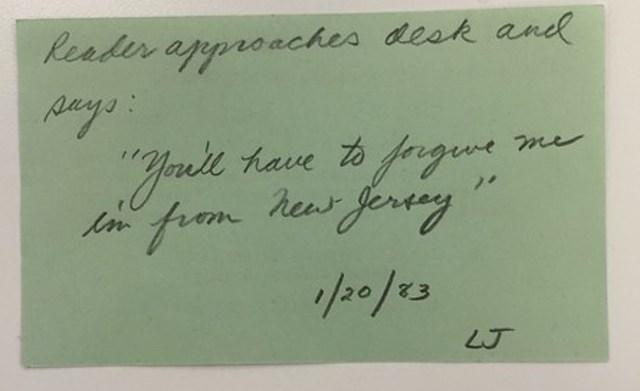 Reader approaches desk and
says:
"You'll have to forgive me
i'm from New Jersey"
1/20/83
LJ